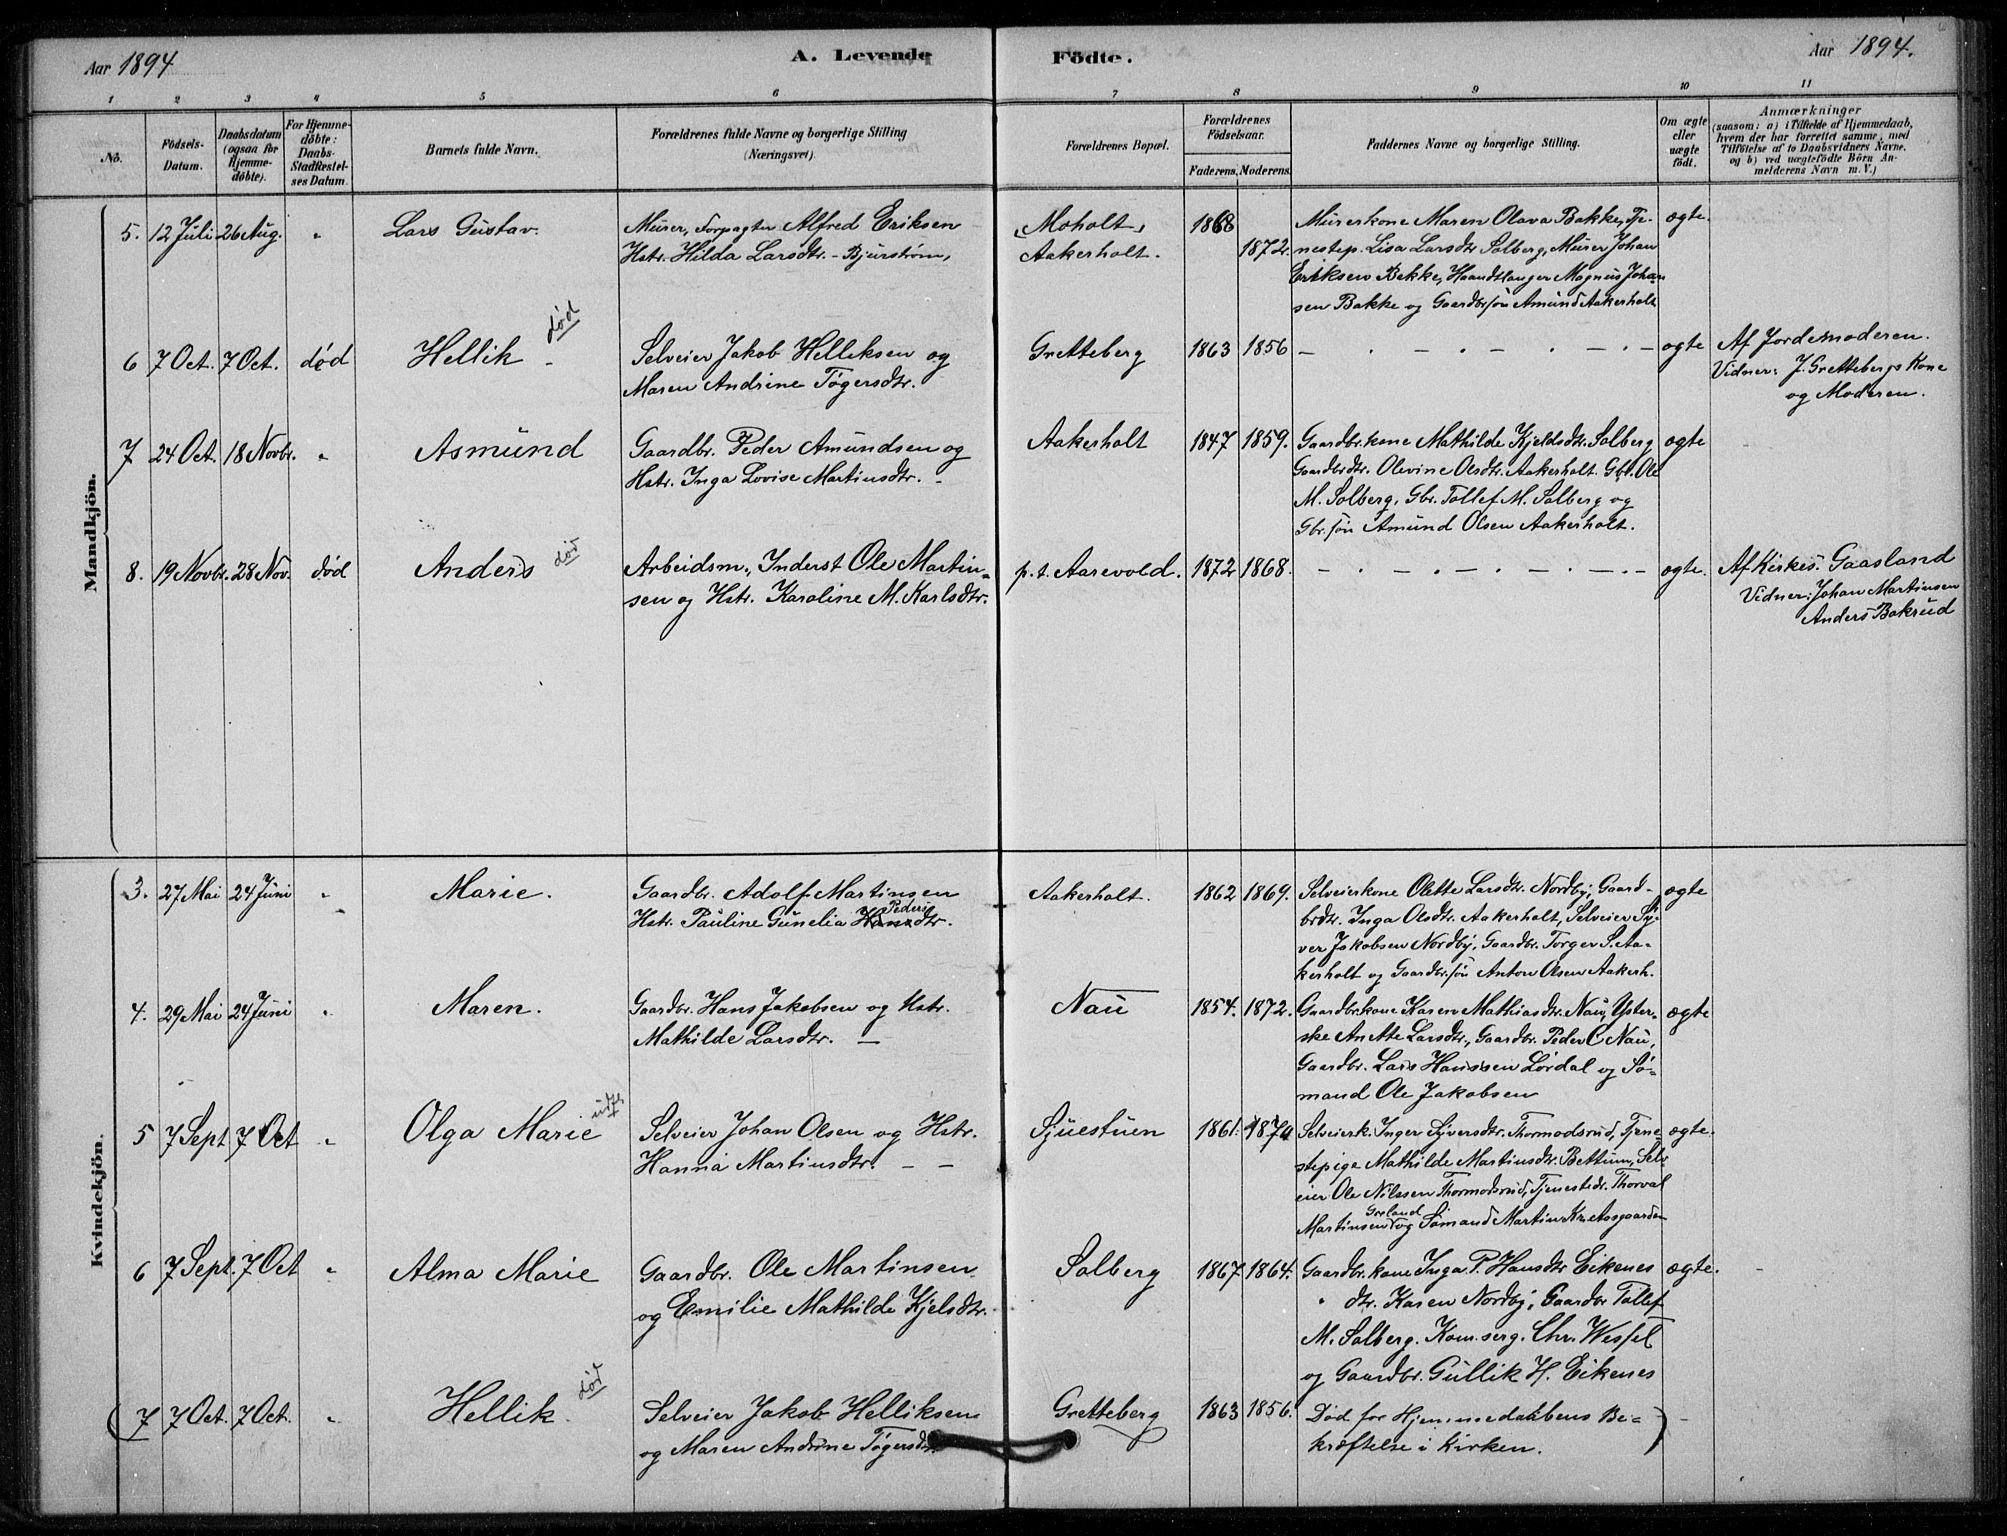 Aar 1894
A. Levende
Födte.
Aar 1894.
1 2 3 4 5 6 7 8 9 10 11
No.
Födsels-
Datum.
Daabsdatum
(ogsaa for
Hjemme-
döbte).
For Hjemme-
döbte:
Daabs-
Stadfæstel-
ses Datum.
Barnets fulde Navn.
Forældrenes fulde Navne og borgerlige Stilling
(Næringsvei)
Forældrenes Bopæl.
Forældrenes
Födselsaar.
Faderens. Moderens.
Faddernes Navne og borgerlige Stilling.
Om ægte
eller
uægte
födt.
Anmærkninger
(saasom: a) i Tilfælde af Hjemmedaab,
hvem der har forrettet samme, med
Tilföielse af to Daabsvidners Navne.
og b) ved uægtefödte Börn An-
melderens Navn m. V.)
Mandkjön.
5. 12 Juli 26 Aug. "
Lars Gustav.
Murer, Forpagter Alfred Eriksen
Hstr. Hilda Larsdtr. - Bjurstrøm,
Moholt,
Aakerholt.
1868
1872.
Murerkone Maren Olava Bakke, Tje-
nestep. Lisa Larsdtr Solberg, Murer Johan
Eriksen Bakke, Haandtlanger Magnus Johan
sen Bakke og Gaardbr.søn Amund Aakerholt
ægte.
6 7 Oct. 7 Oct. død
Hellik -
død
Selveier Jakob Helliksen og
Maren Andrine Tøgersdtr.
Gretteberg
1863 1856
ægte
Af Jordemoderen.
Vidner: J. Grettebergs Kone
og Moderen.
7 24 Oct. 18 Novbr. "
Asmund
Gaardbr. Peder Amundsen og
Hstr. Inga Lovise Martinsdtr. -
Aakerholt
1847 1859.
Gaardbr.kone Mathilde Kjeldsdtr. Solberg
Gaardbrdtr. Olevine Olsdtr. Aakerholt. Gbr. Ole
M. Solberg, Gbr. Tollef M. Solberg og
Gbr.søn Amund Olsen Aakerholt.
ægte
8. 19 Novbr. 28 Nov. død
Anders
død
Arbeidsm., Inderst Ole Martin-
sen og Hstr. Karoline M. Karlsdtr.
p.t. Aarevold.
1872 1868.
ægte.
Af Kirkes. Gaasland
Vidner: Johan Martinsen
Anders Bakrud
Kvindekjön.
3. 27 Mai 24 Juni "
Marie.
Gaardbr. Adolf Martinsen
Hstr. Pauline Gunelia Hansdtr.
Peders
Aakerholt.
1862 1869.
Selveierkone Olette Larsdtr. Nordby, Gaard-
brdtr. Inga Olsdtr. Aakerholt, Selveier Sy-
ver Jakobsen Nordby, Gaardbr. Torger S. Aa-
kerholt og Gaardbr.søn Anton Olsen Aakerh.
ægte
4. 29 Mai 24 Juni "
Maren.
Gaardbr. Hans Jakobsen og Hstr.
Mathilde Larsdtr. -
Nau
1854. 1872.
Gaardbr.kone Karen Mathiasdtr. Nau, Yster-
ske Anette Larsdtr., Gaardbr. Peder C Nau,
Gaardbr. Lars Hanssen Lørdal og Sø-
mand Ole Jakobsen
ægte
5 7 Sept 7 Oct "
Olga Marie
Selveier Johan Olsen og Hstr.
Hanna Martinsdtr. - -
Sjuestuen
1861. 1870
Selveierk. Inger Syversdtr. Thormodsrud, Tjene-
stepige Mathilde Martinsdtr. Bettum, Selv-
eier Ole Nilssen Thormodsrud, Tjenestedr. Thorval
Martinsen og Sømand Martin Kr. Aasgaarden
ægte.
6 7 Sept. 7 Oct "
Alma Marie
Gaardbr. Ole Martinsen
og Emilie Mathilde Kjelsdtr.
Solberg
1867 1864.
Gaardbr.kone Inga P. Hansdtr Eikenes
" dtr. Karen Nordby, Gaardbr Tollef
M. Solberg. Kom.serg. Chr. Wessel
og Gaardbr. Gullik H. Eikenes
ægte.
(7 7 Oct. 7 Oct. "
Hellik.
død
Selveier Jakob Helliksen
og Maren Andrine Tøgersdtr.
Gretteberg
1863 1856.
Død før Hjemmedaabens Be-
kræftelse i Kirken. )